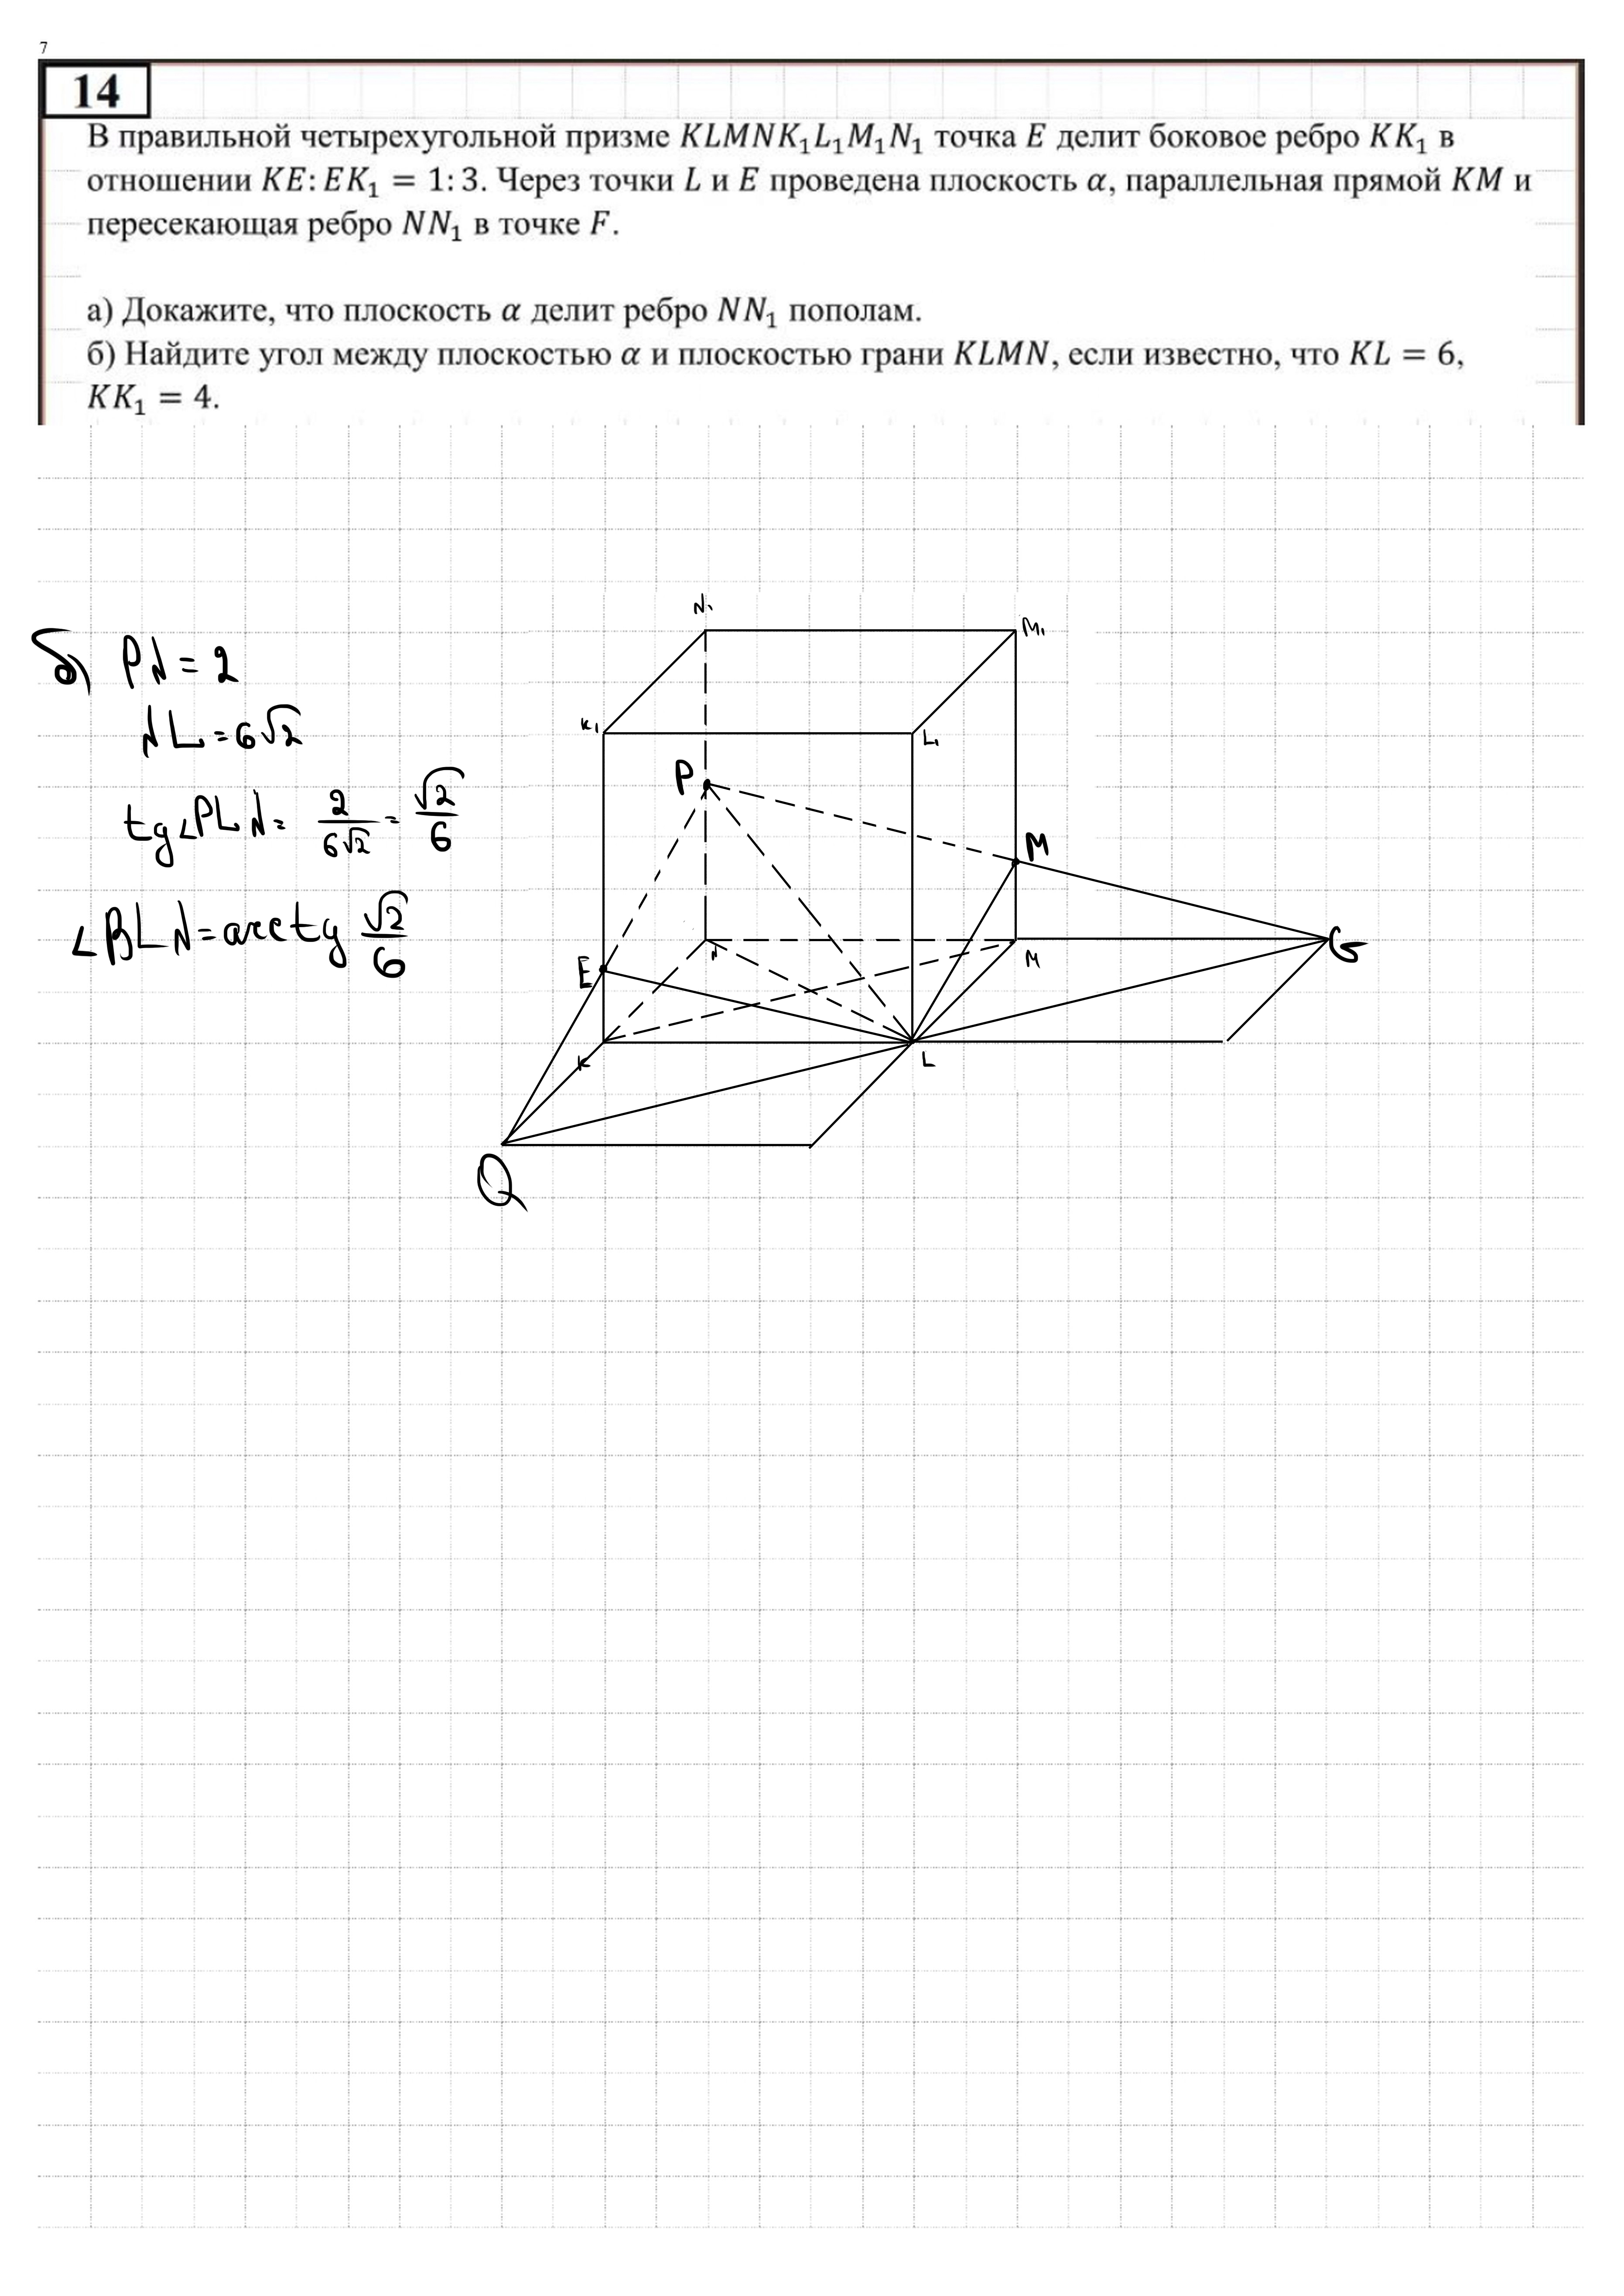 7
14
В правильной четырехугольной призме KLMNK₁L₁M₁N₁ точка E делит боковое ребро KK₁ в
отношении KE: EK₁ = 1: 3. Через точки L и E проведена плоскость α, параллельная прямой KM и
пересекающая ребро NN₁ в точке F.
а) Докажите, что плоскость α делит ребро NN₁ пополам.
б) Найдите угол между плоскостью α и плоскостью грани KLMN, если известно, что KL = 6,
KK₁ = 4.
б) PN = 2
NL = 6√2
tg∠PLN = 2/(6√2) = √2/6
∠BLN = arctg √2/6
N₁
M₁
K₁
L₁
P
M
N
M
G
E
K
L
Q